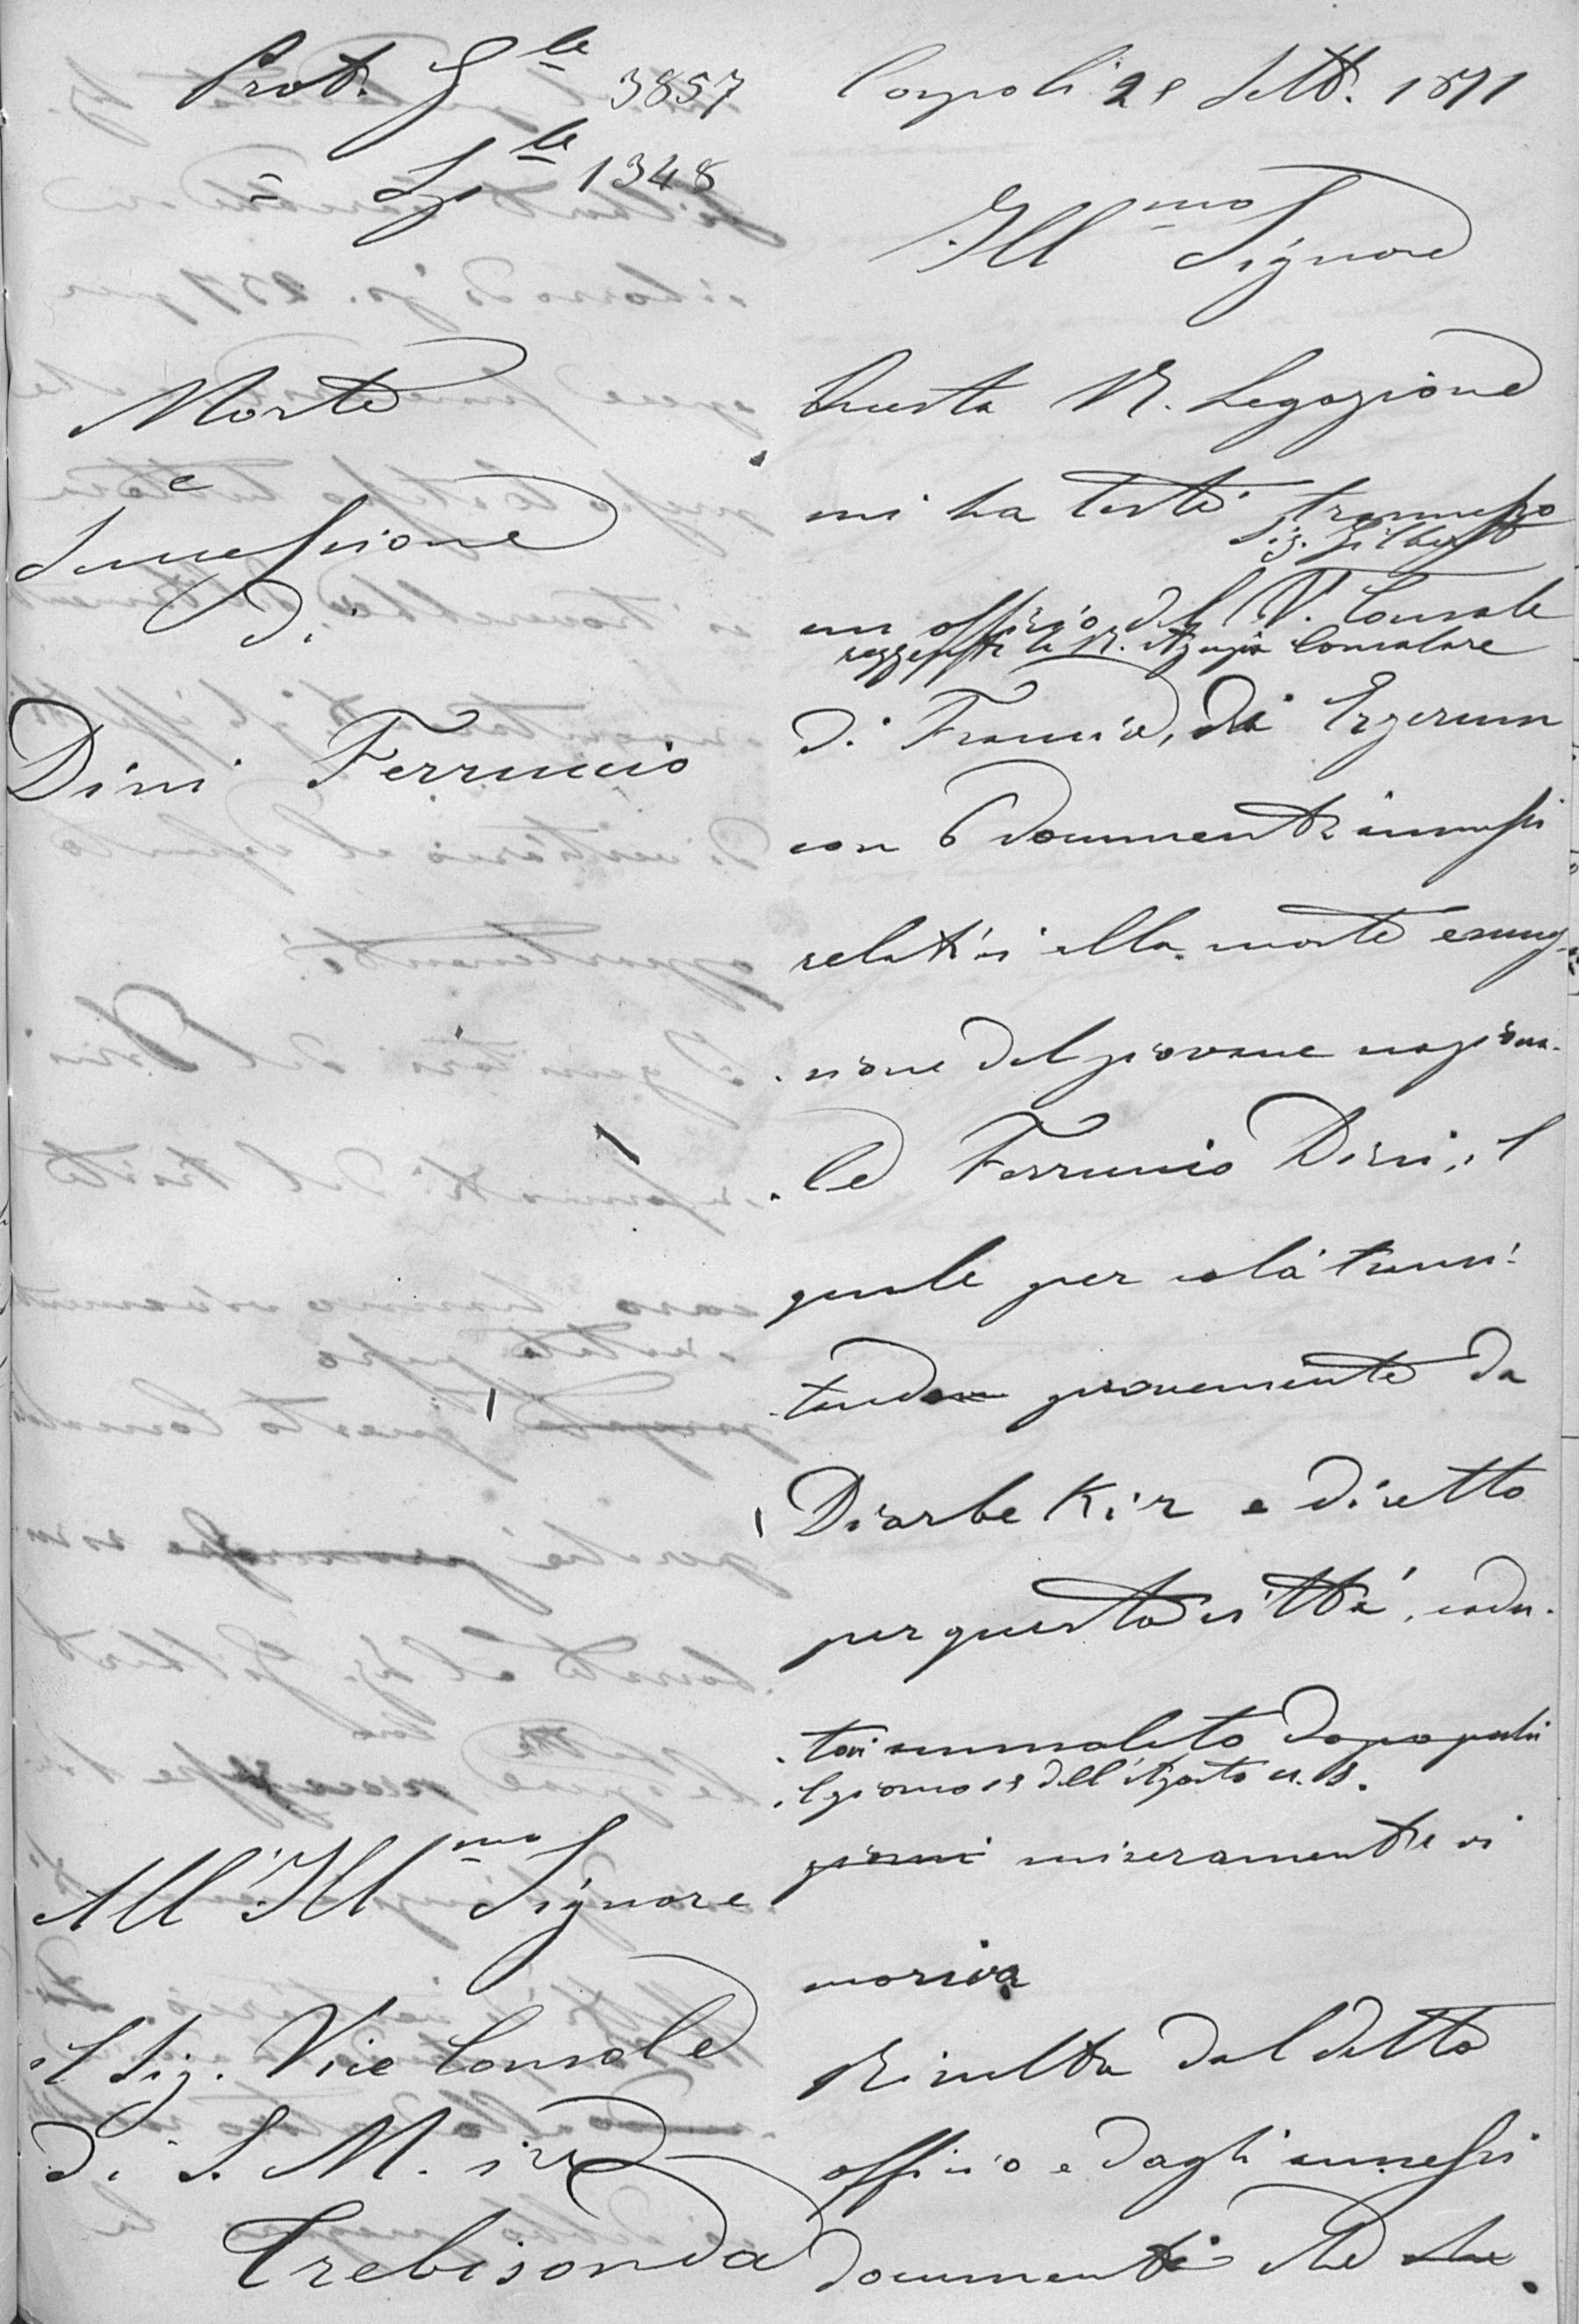 Prot. Gle 3857
" Sple 1348
Morte
e
Successione
di
Dini Ferruccio
All'Illmo Signore
il Sig. Vice Console
di S. M. in
Trebisonda
Cospoli 28 Sett. 1871
Illmo Signore
Questa R. Legazione
mi ha testè trasmesso
Sig. Gilbert
un officio del V. Console
reggente la R. Agenzia Consolare
di Francia, di Erzerum
con 6 documenti annessi
relativi alla morte
del giovane naziona-
-le Ferruccio Dini, il
quale per colà transi-
-tando proveniente da
Diarbekir e diretto
per questa città, cadu-
-tovi ammalato dopo pochi
il giorno 18 dell'Agosto u. s.
giorni miseramente vi
moriva
Risulta dal detto
officio e dagli annessi
documenti che che